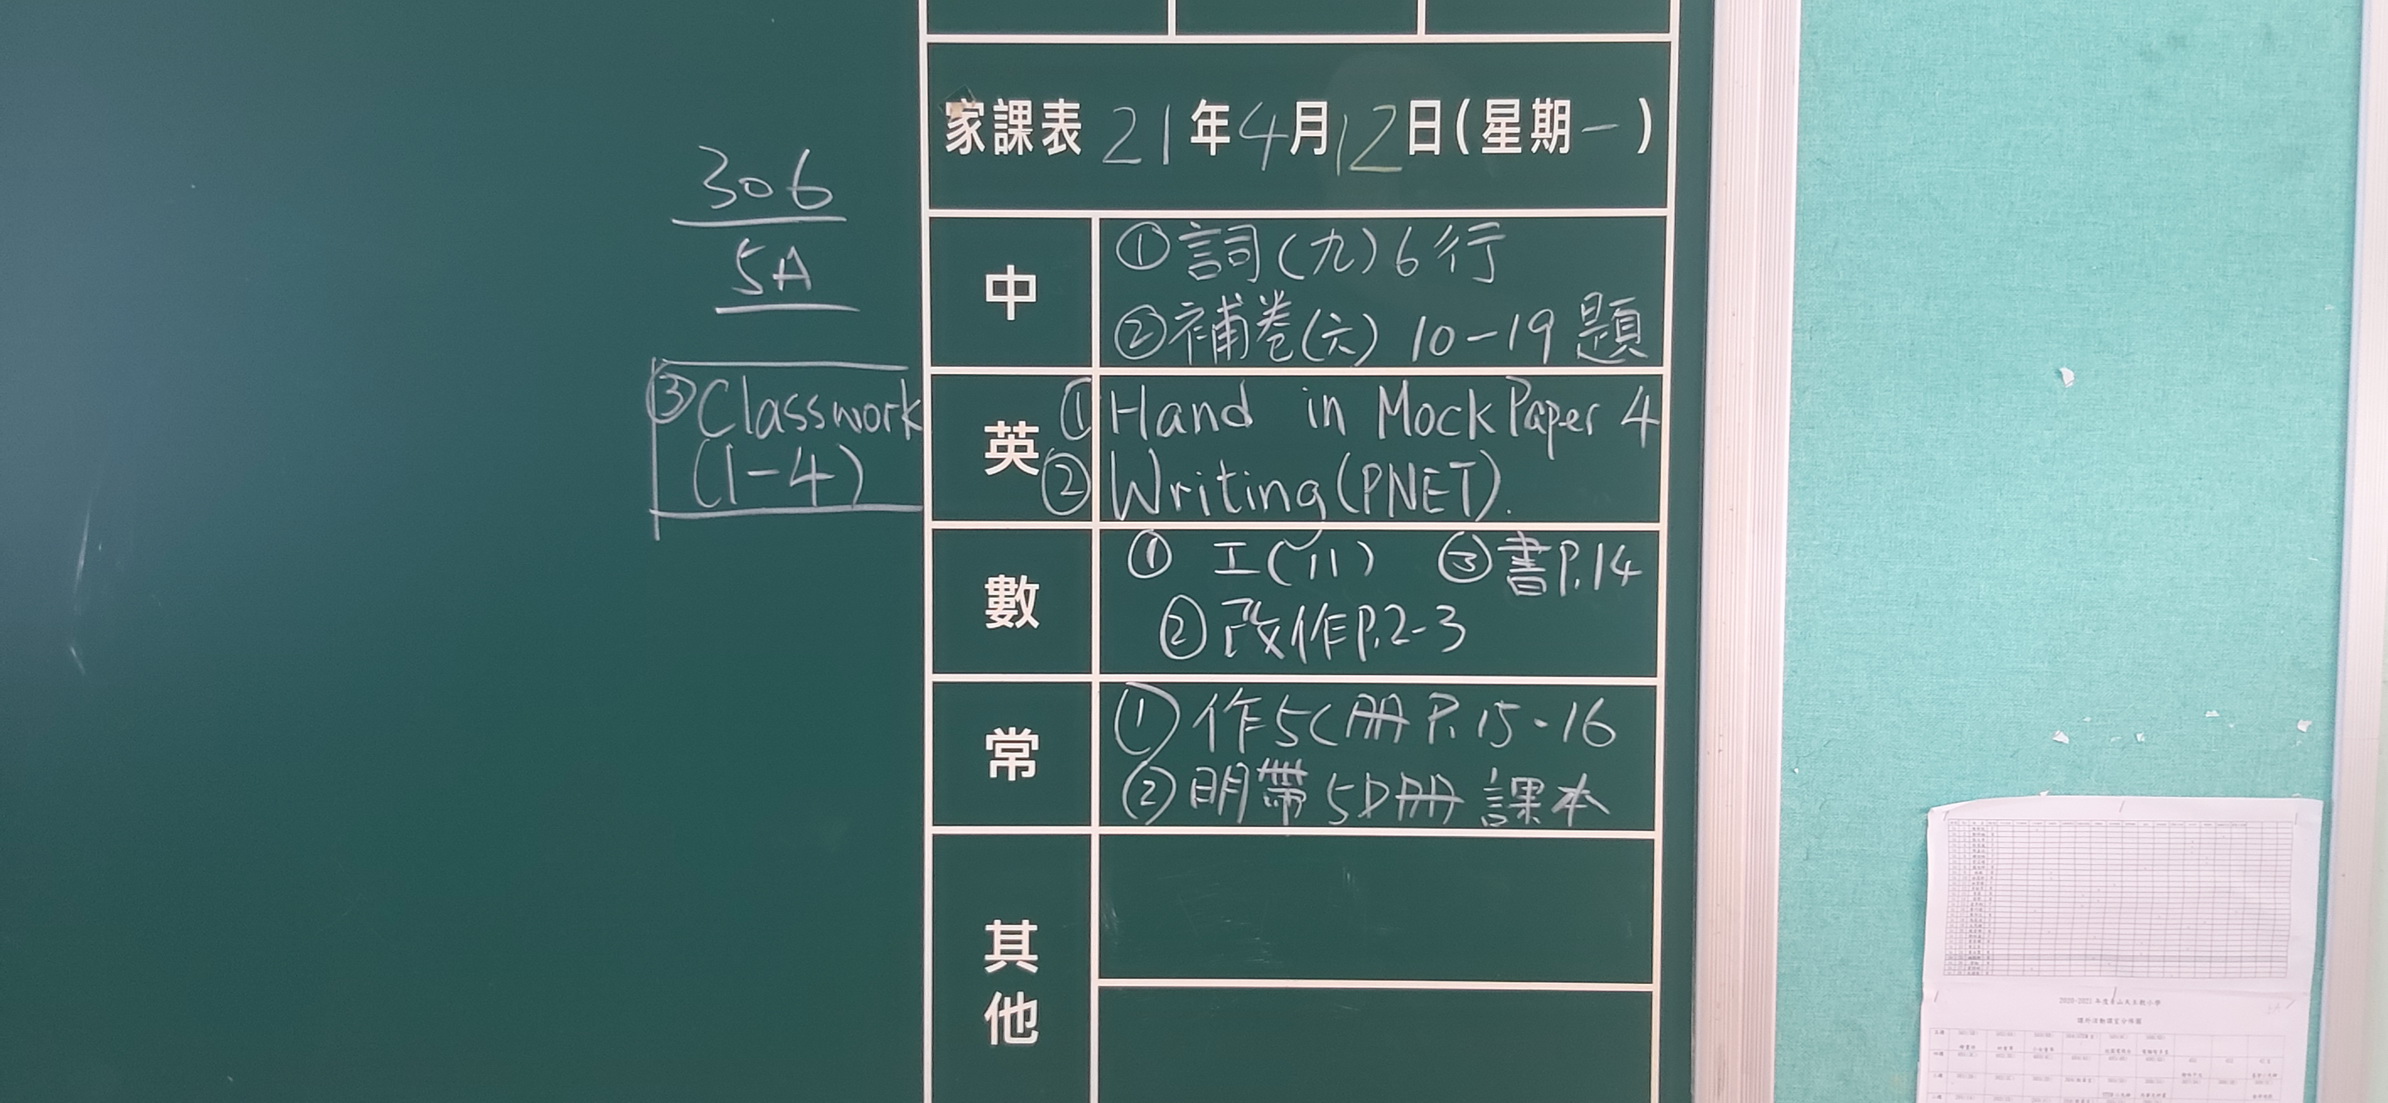 306
5A
家課表 21年4月12日(星期一)
中
①詞(九)6行
②補卷(六) 10-19題
英
①Hand in Mock Paper 4
②Writing(PNET).
③Classwork
(1-4)
數
① 工(八) ③書P.14
②改作P.2-3
常
①作5C冊P.15-16
②明帶5D冊課本
其他